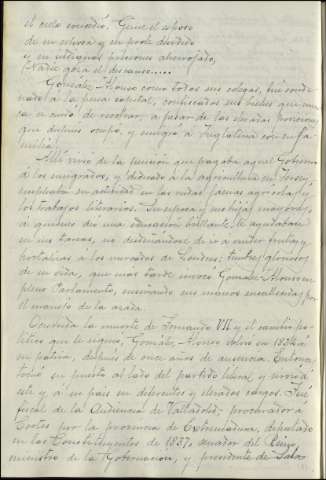 el cielo concedió. Gime el esposo
de su esposa y su prole dividido
y en indignas prisiones aherrojado,
¡Nadie goza el descanso.....
González Alonso como todos sus colegas, fué conde-
nado a la pena capital, confiscados sus bienes que nun-
ca se cuidó de recobrar, a pesar de los elevados
que después ocupó, y emigró a Inglaterra con su fa-
milia.
Allí vivió de la pensión que pagaba aquel Gobierno
a los emigrados, y dedicado a la agricultura en
empleaba su actividad en las rudas faenas agrícolas y
los trabajos literarios. Su esposa y sus hijas mayores,
a quienes dió una educación brillante, le ayudaban
en sus tareas, no desdeñándose de ir a vender frutas y
hortalizas a los mercados de Londres; timbres gloriosos
de su vida, que más tarde invocó González Alonso en
pleno Parlamento, enseñando sus manos encallecidas por
el manejo de la azada.
Ocurrida la muerte de Fernando VII y el cambio po-
lítico que le siguió, González Alonso volvió en 1834 a
su patria, después de once años de ausencia. Entonces
tomó su puesto al lado del partido liberal, y sirvió a
este y a su país en diferentes y elevados cargos. Fué
fiscal de la Audiencia de Valladolid; procurador a
Cortes por la provincia de Extremadura, diputado
en las Constituyentes de 1837, senador del Reino,
ministro de la Gobernación, y presidente de Sala